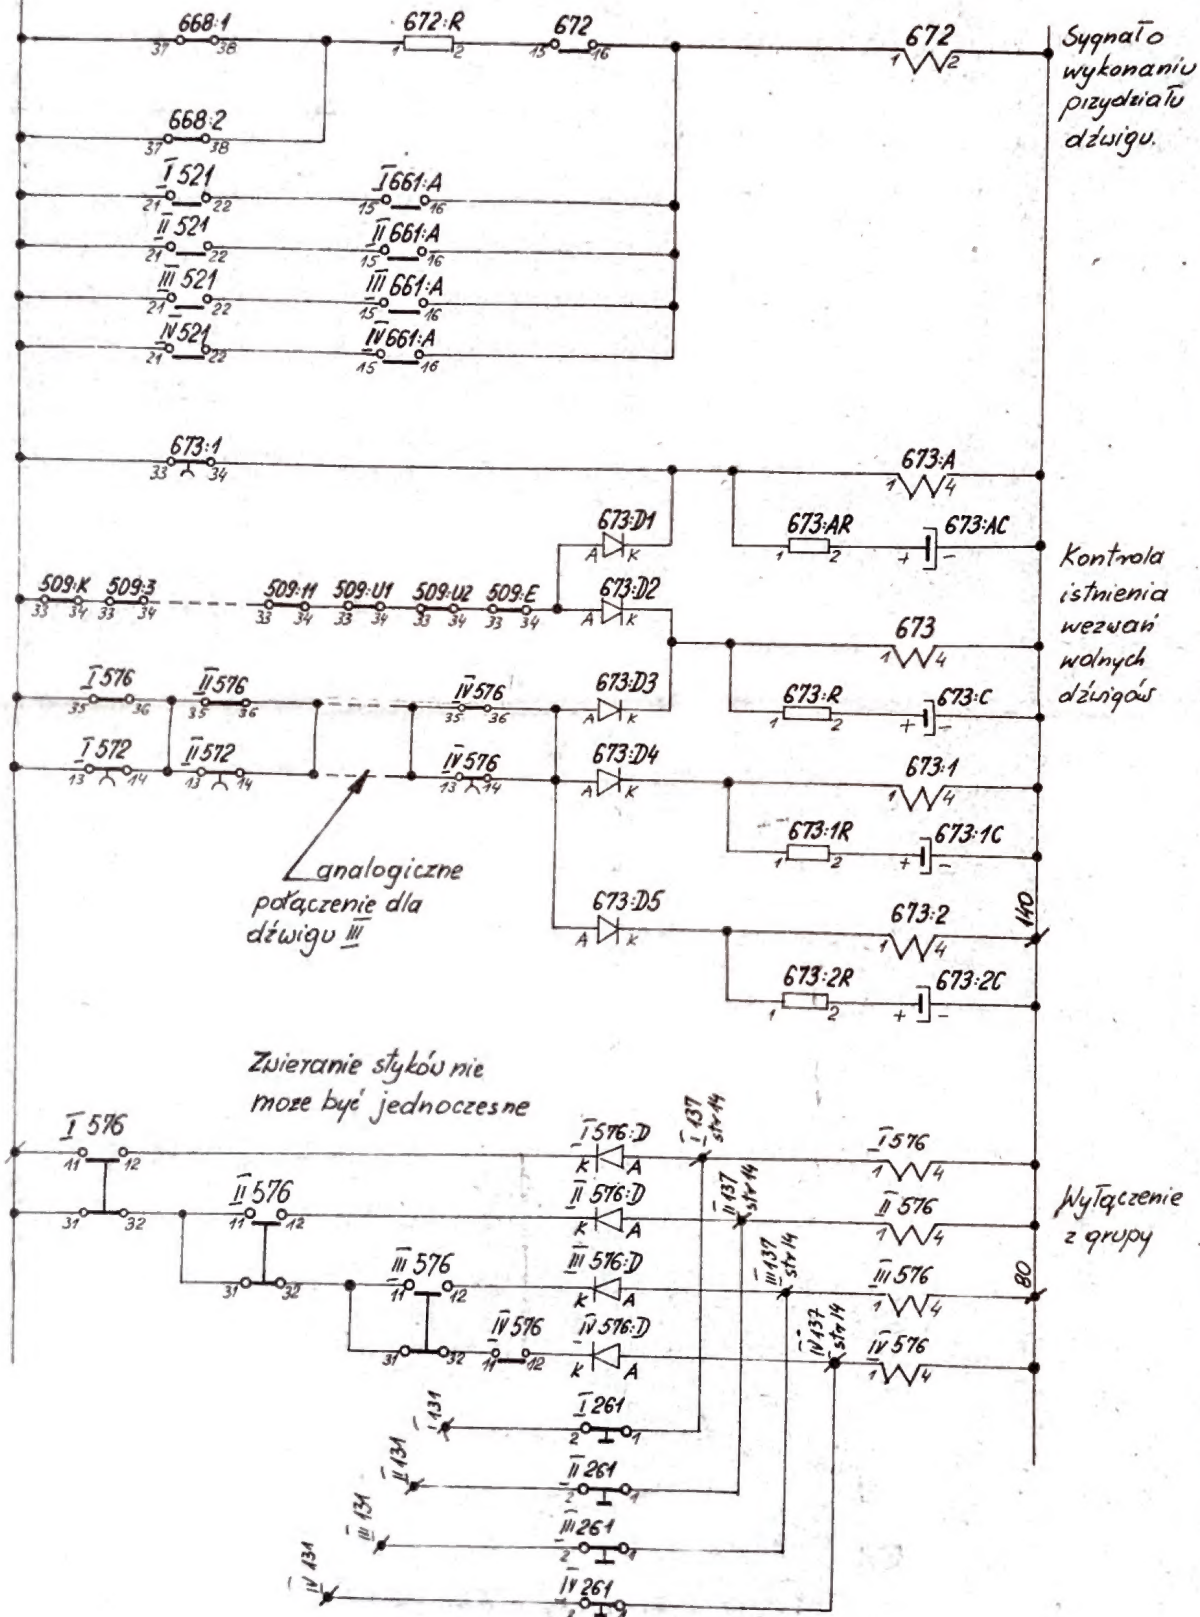 668:1
37 38
672:R
1 2
672
15 16
672
1 2
Sygnał o
wykonaniu
przydziału
dźwigu.
668:2
37 38
I 521
21 22
I 661:A
15 16
II 521
21 22
II 661:A
15 16
III 521
21 22
III 661:A
15 16
IV 521
21 22
IV 661:A
15 16
673:1
33 34
673:A
1 4
673:D1
A K
673:AR
1 2
673:AC
+ -
Kontrola
istnienia
wezwań
wolnych
dźwigów
509:K
33 34
509:3
33 34
509:11
33 34
509:U1
33 34
509:U2
33 34
509:E
33 34
673:D2
A K
673
1 4
I 576
35 36
II 576
35 36
IV 576
35 36
673:D3
A K
673:R
1 2
673:C
+ -
I 572
13 14
II 572
13 14
IV 576
13 14
673:D4
A K
673:1
1 4
673:1R
1 2
673:1C
+ -
analogiczne
połączenie dla
dźwigu III
673:D5
A K
673:2
1 4
140
673:2R
1 2
673:2C
+ -
Zwieranie styków nie
może być jednoczesne
I 576
11 12
I 576:D
K A
I 137
str 14
I 576
1 4
31 32
II 576
11 12
II 576:D
K A
II 137
str 14
II 576
1 4
Wyłączenie
z grupy
31 32
III 576
11 12
III 576:D
K A
III 137
str 14
III 576
1 4
80
31 32
IV 576
11 12
IV 576:D
K A
IV 137
str 14
IV 576
1 4
I 131
I 261
2 1
II 131
II 261
2 1
III 131
III 261
2 1
IV 131
IV 261
2 1